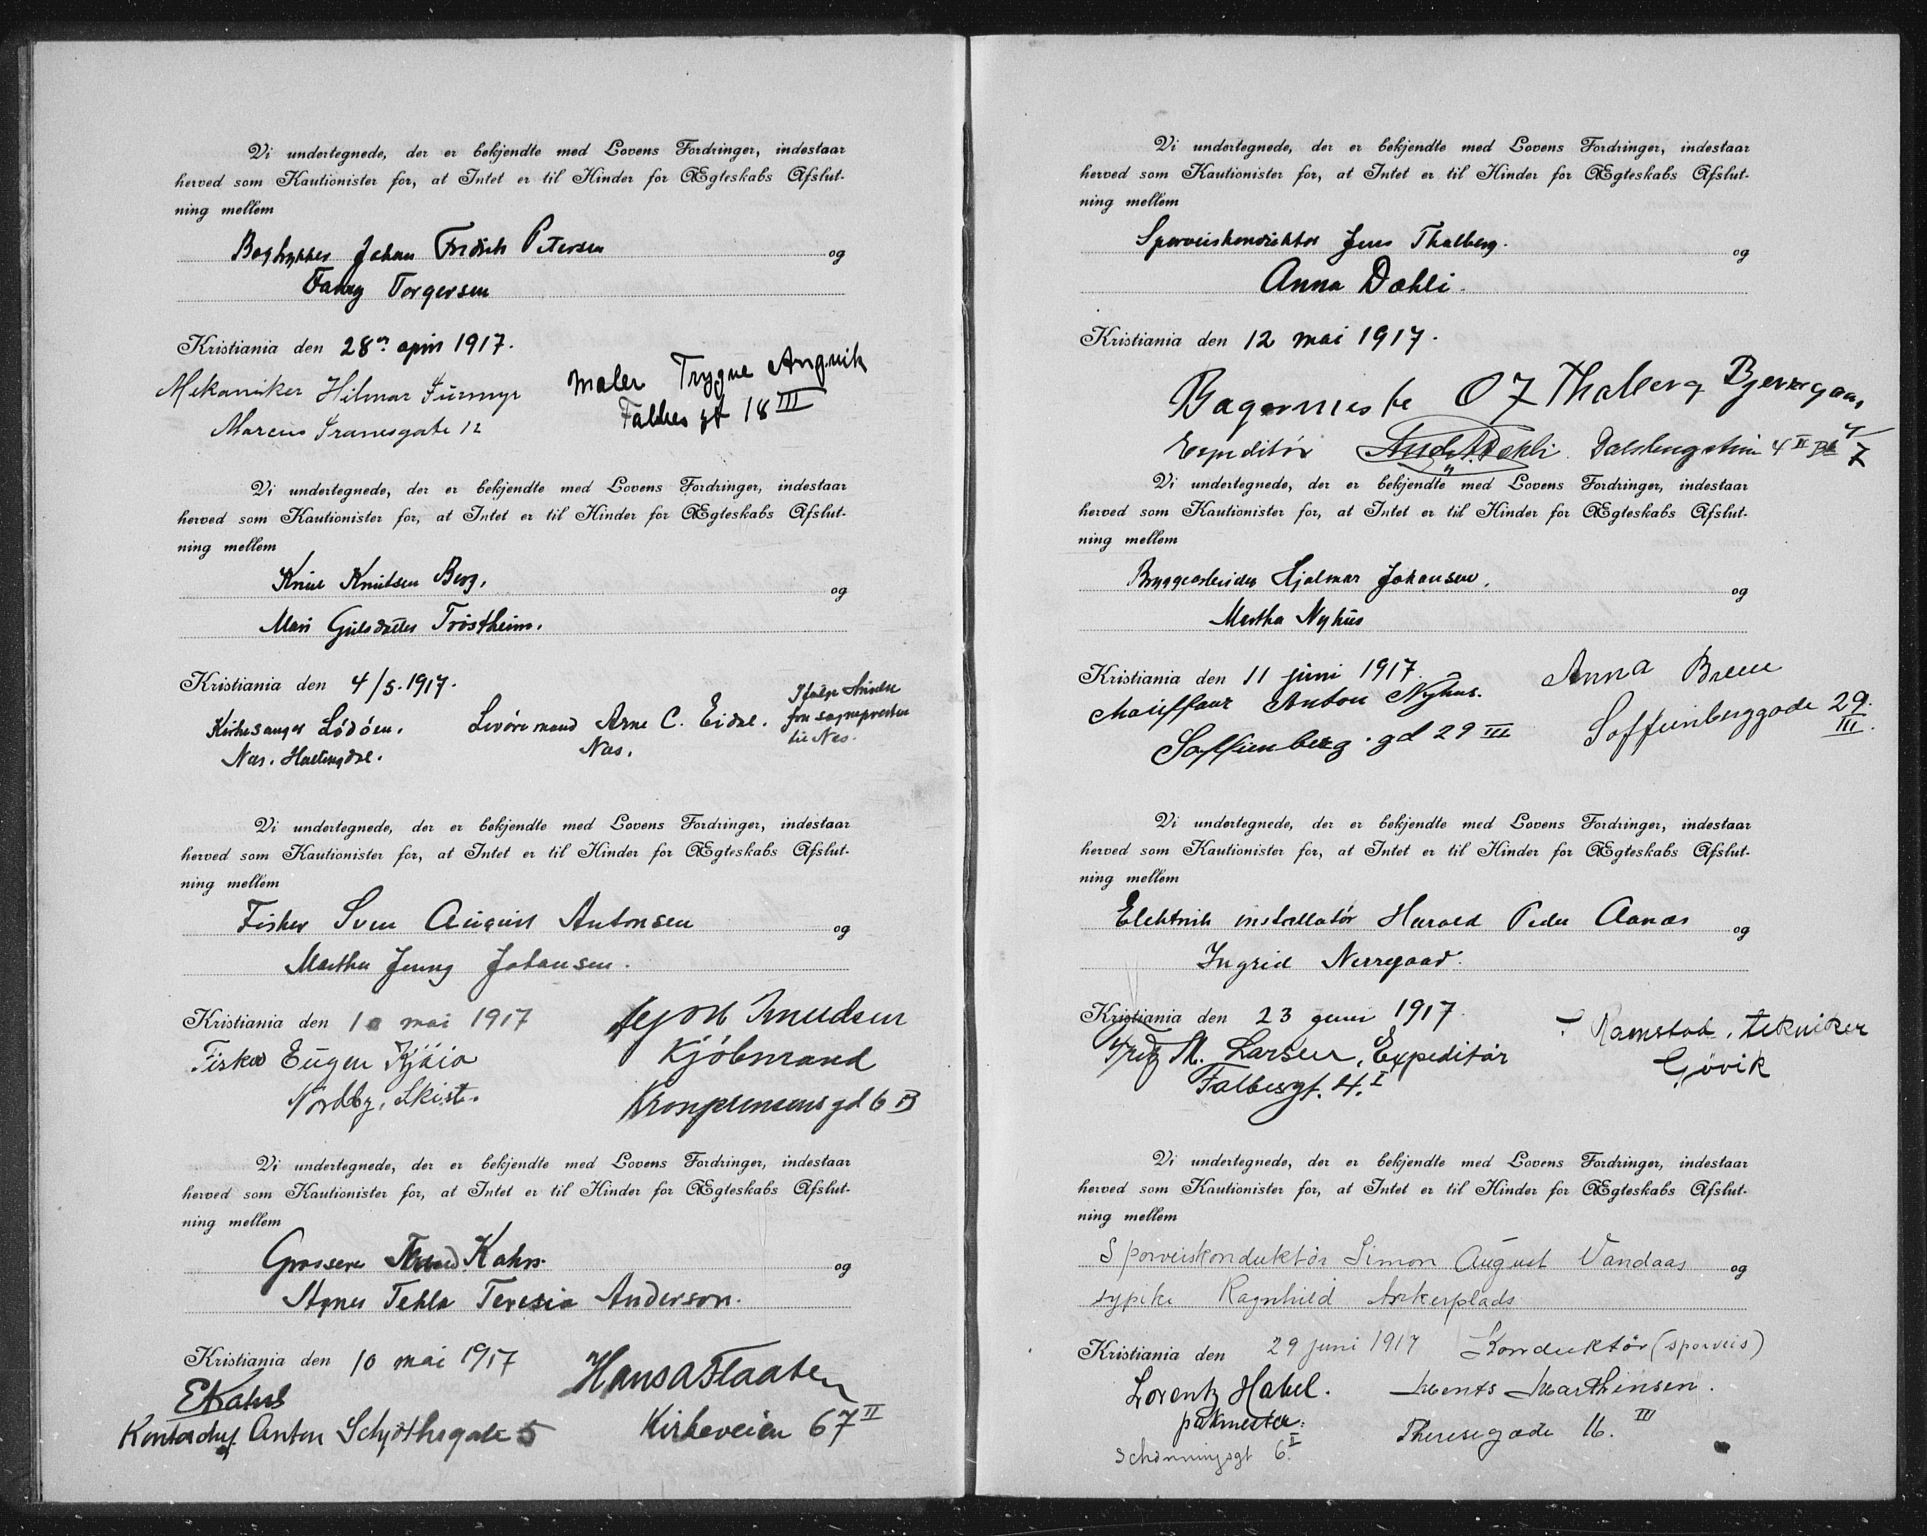 Vi undertegnede, der er bekjendte med Lovens Fordringer, indestaar
herved som Kautionister for, at Intet er til Hinder for Ægteskabs Afslut-
ning mellem
Bogtrykker Johan Fridich Petersen og
Fanny Torgersen
Kristiania den 28de april 1917.
Mekaniker Hilmar Furmyr
Marcus Tranesgate 12
Maler Trygve Angvik
Falbes gt 18 III
Vi undertegnede, der er bekjendte med Lovens Fordringer, indestaar
herved som Kautionister for, at Intet er til Hinder for Ægteskabs Afslut-
ning mellem
Knut Knutsen Berg, og
Mari Gulsdatter Tröstheim.
Kristiania den 4/5. 1917.
Kirkesanger Lödöen.
Nas. Hallingdal.
Arne C. Eidal.
Nas.
fra sognepresten
til Nes.
Vi undertegnede, der er bekjendte med Lovens Fordringer, indestaar
herved som Kautionister for, at Intet er til Hinder for Ægteskabs Afslut-
ning mellem
Fisker Sven August Antonsen og
Martha Jenny Johansen.
Kristiania den 10 mai 1917
Fisker Eugen
Nordby,
Knudsen
Kjöbmand
Kronprinsensgd 6 B
Vi undertegnede, der er bekjendte med Lovens Fordringer, indestaar
herved som Kautionister for, at Intet er til Hinder for Ægteskabs Afslut-
ning mellem
Grosserer Kahrs. og
Agnes Tekla Teresia Anderson.
Kristiania den 10 mai 1917
EKahrs
Kontorchef Anton Schjöthsgate 5
Hans A Flaaten
Kirkeveien 67 II
Vi undertegnede, der er bekjendte med Lovens Fordringer, indestaar
herved som Kautionister for, at Intet er til Hinder for Ægteskabs Afslut-
ning mellem
Sporveiskonduktör Jens Thalberg. og
Anna Dæhli.
Kristiania den 12 mai 1917.
Bagermester O J Thalberg
Expeditör Dæhli. 4 II
Vi undertegnede, der er bekjendte med Lovens Fordringer, indestaar
herved som Kautionister for, at Intet er til Hinder for Ægteskabs Afslut-
ning mellem
Bryggearbeider Hjalmar Johansen. og
Martha Nyhus
Kristiania den 11 juni 1917.
Chauffaur Anton Nyhus.
Soffienberg. gd 29 III
Anna Breen
Soffienberggade 29.
III.
Vi undertegnede, der er bekjendte med Lovens Fordringer, indestaar
herved som Kautionister for, at Intet er til Hinder for Ægteskabs Afslut-
ning mellem
Elektrisk installatör Harald Peder Aanæs og
Ingrid Nerregaard.
Kristiania den 23 juni 1917.
M. Larsen, Expeditör
Falbesgt. 4. I
Ramstad, tekniker
Gjövik
Vi undertegnede, der er bekjendte med Lovens Fordringer, indestaar
herved som Kautionister for, at Intet er til Hinder for Ægteskabs Afslut-
ning mellem
Sporveiskonduktör Simon August Vandaas og
sypike Ragnhild Askerplads
Kristiania den 29 juni 1917
Lorentz Habel.
pakmester.
Schønningsgt 6. I
Konduktör (sporveis)
Ments Marthinsen.
Theresegade 16. III